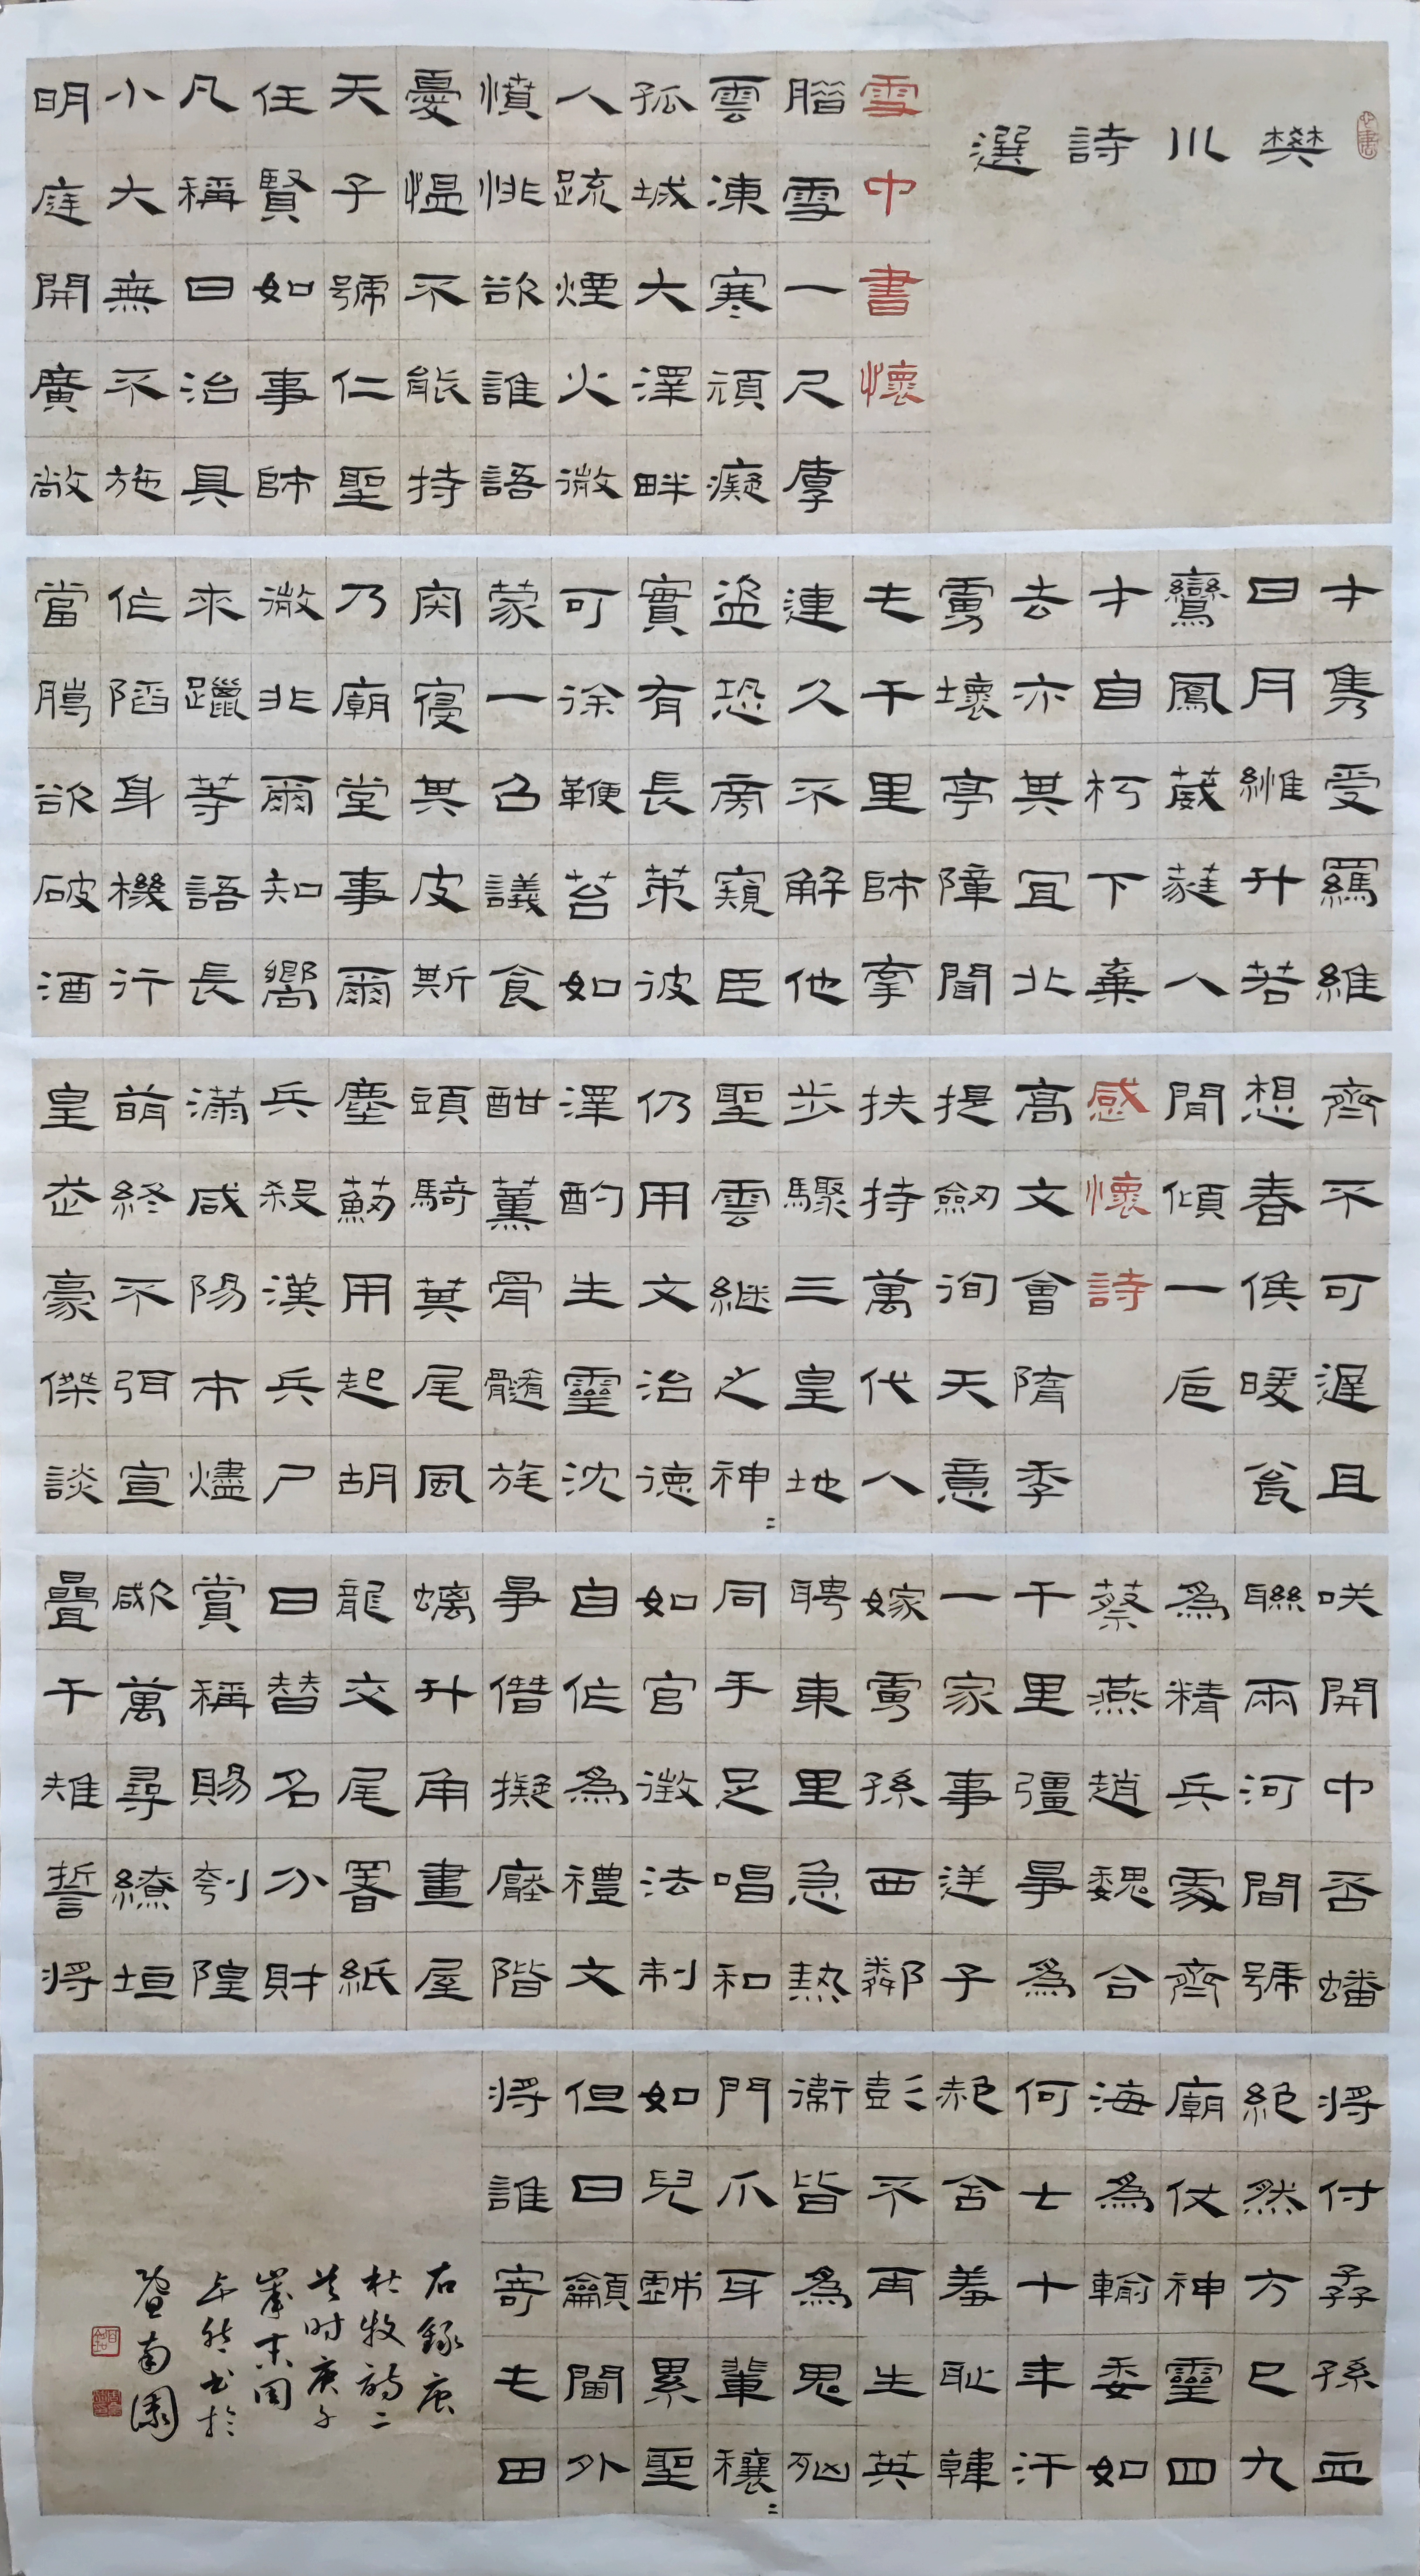 樊川詩選
雪中書懷
臘雪一尺厚
雲凍寒頑癡
孤城大澤畔
人疏煙火微
憤悱欲誰語
憂慍不能持
天子號仁聖
任賢如事師
凡稱曰治具
小大無不施
明庭開廣敞
才雋受羈維
日月縆升若
鸞鳳葳蕤人
才自朽下棄
去亦其宜北
虜壞亭障聞
屯千里師牽
連久不解他
盜恐旁窺臣
實有長策彼
可徐鞭笞如
蒙一召議食
肉寢其皮斯
乃廟堂事爾
微非爾知嚮
來躐等語長
作陷身機行
當臘欲破酒
齊不可遲且
想春候暖瓮
間傾一卮
感懷詩
高文會隋季
提劒徇天意
扶持萬代人
步驟三皇地
聖云繼之神〻
仍用文治德
澤酌生靈沈
酣薰骨髓旄
頭騎箕尾風
塵薊用起胡
兵殺漢兵尸
滿咸陽市燼
萌終不弭宣
皇走豪傑談
咲開中否蟠
聯兩河間號
為精兵處齊
蔡燕趙魏合
千里彊爭為
一家事逆子
嫁虜孫西鄰
聘東里急熱
同手足唱和
如宮徵法制
自作為禮文
爭僭擬壓階
螭斗角畫屋
龍交尾署紙
日替名分財
賞稱賜刳隍
欿萬尋繚垣
疊千雉誓將
將付孱孫血
絕然方已九
廟仗神靈四
海為輸委如
何七十年汗
赩含羞恥韓
彭不再生英
衛皆為鬼凶
門爪牙輩穰〻
如兒戲累聖
但日籲閫外
將誰寄屯田
右錄唐
杜牧詩二
首時庚子
歲末閏
书於
南園